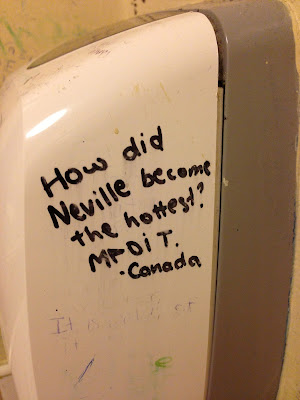 How did
Neville become
the hottest?
MPDIT.
·Canada
It